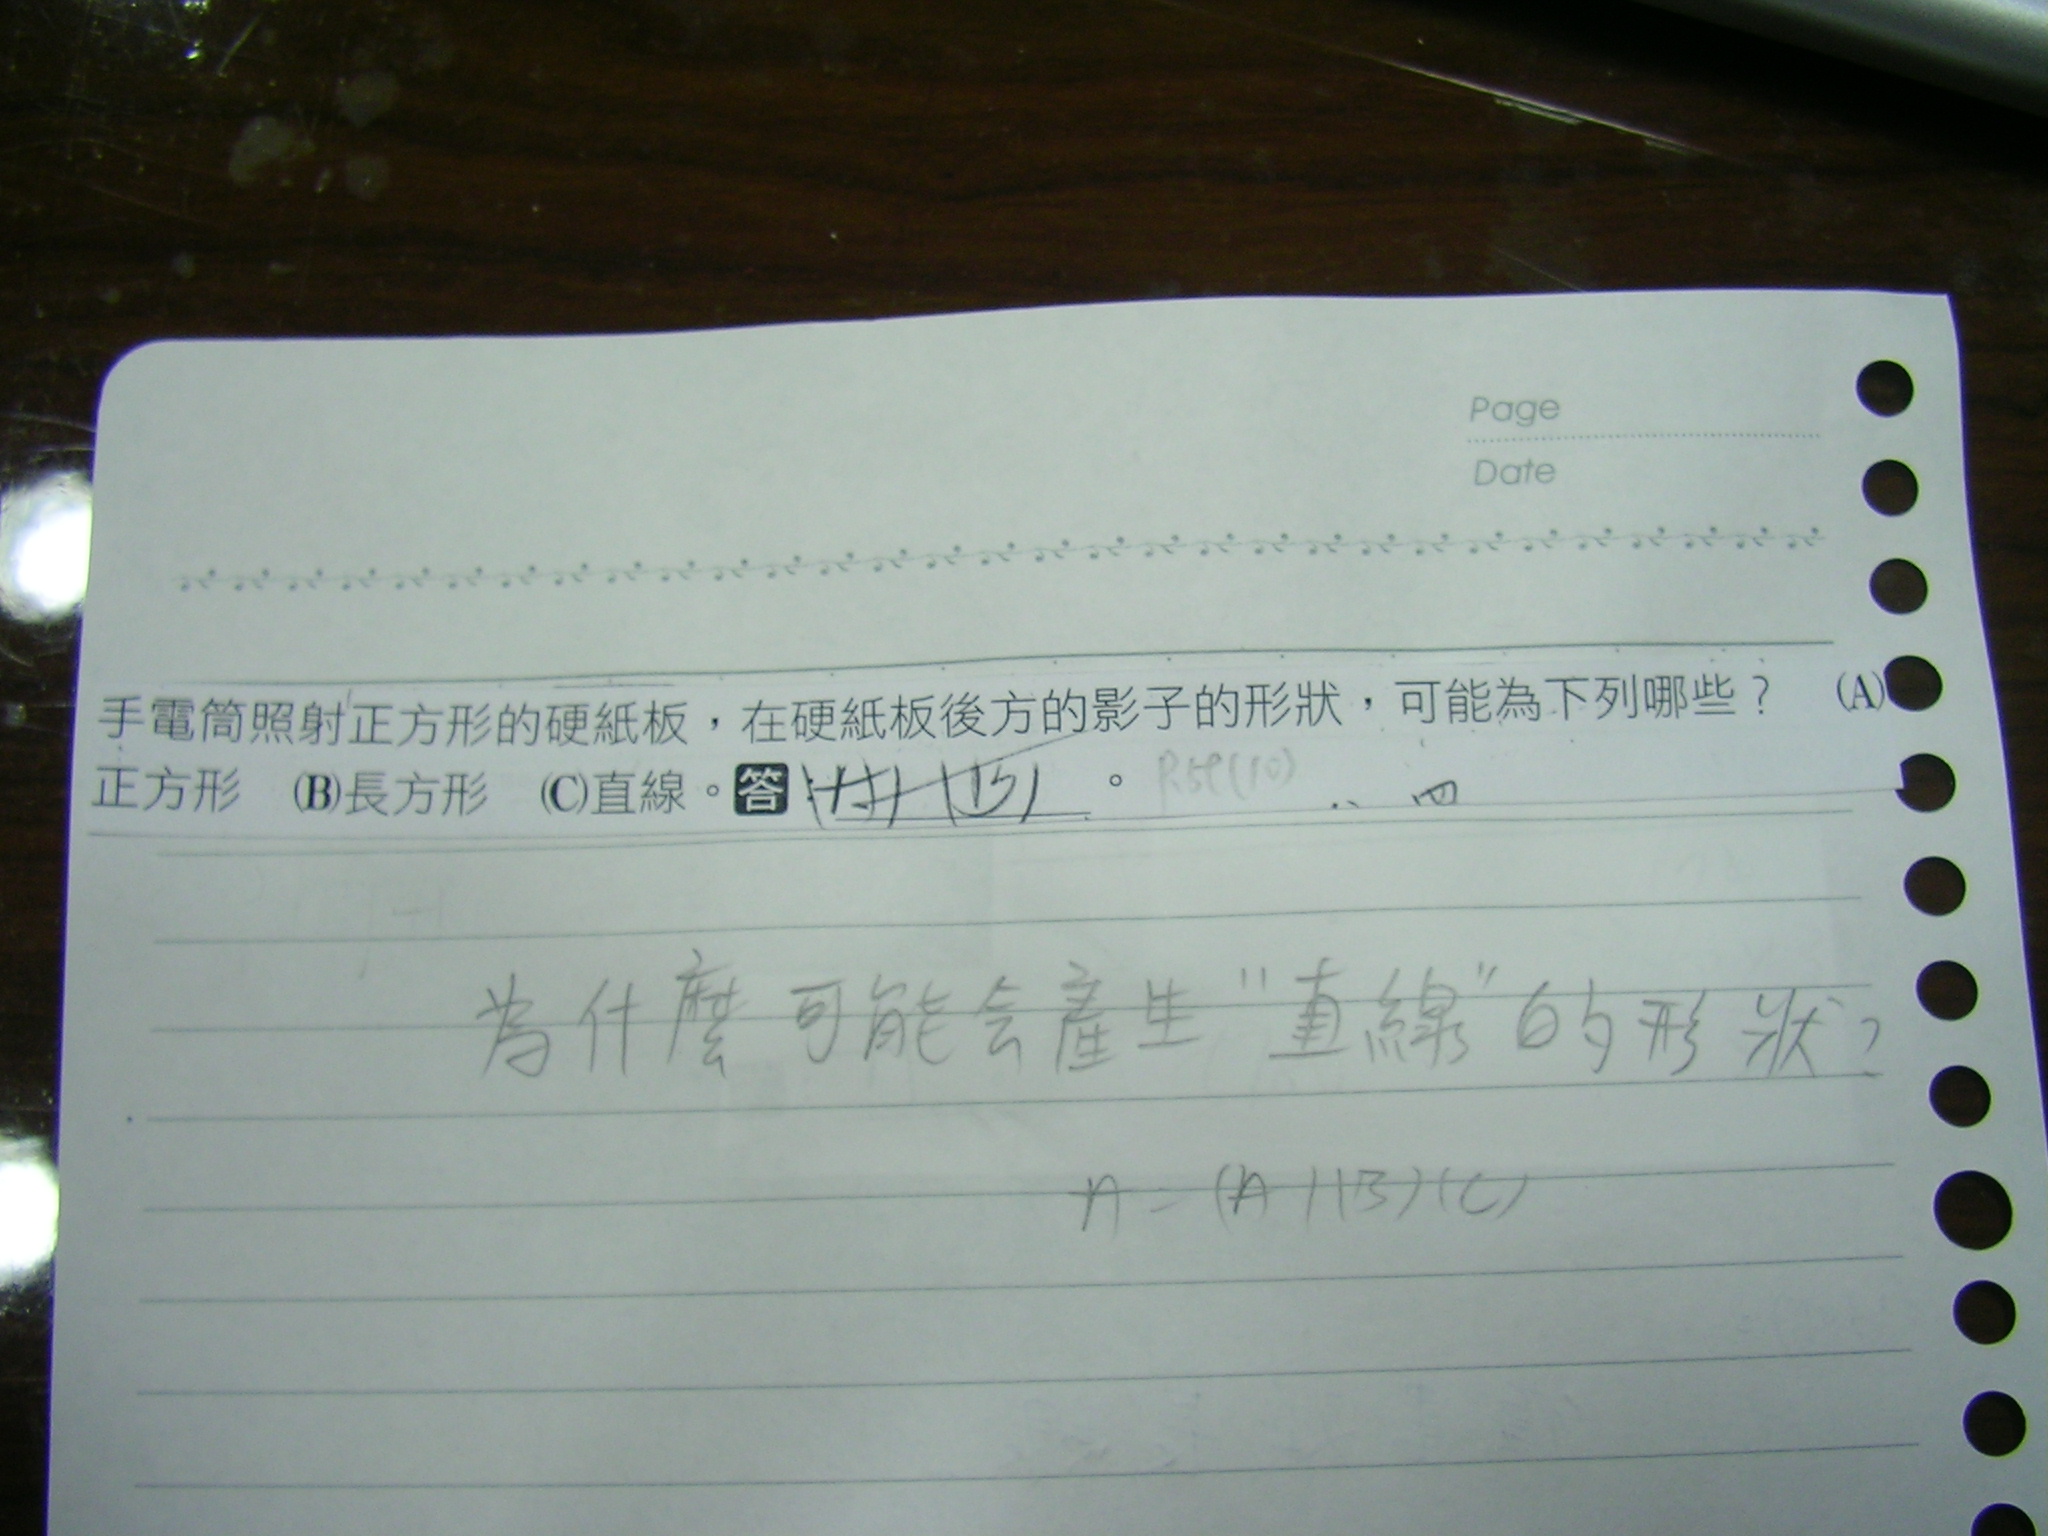 Page
Date
手電筒照射正方形的硬紙板，在硬紙板後方的影子的形狀，可能為下列哪些？ (A)
正方形 (B)長方形 (C)直線。答：(A) (B) 。 P.59(10) 四
為什麼可能会產生"直線"的形狀？
A=(A)(B)(C)